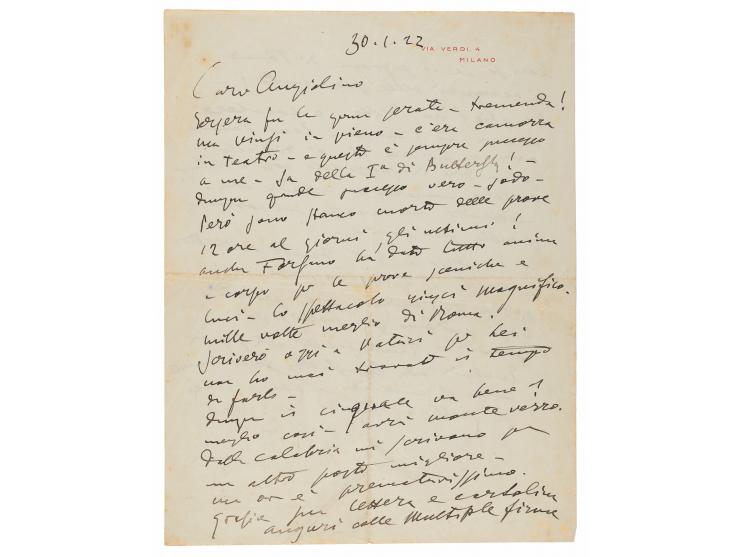 30.1.22
VIA VERDI, 4
MILANO
Caro Angiolino
Iersera fu la gran serata - tremenda!
ma vinsi in pieno - c'era camorra
in teatro - e questo è sempre successo
a me - fa della Iª di Butterfly! -
dunque grande successo vero - sodo -
Però sono stanco morto delle prove
12 ore al giorno gli ultimi!
anche Forzano ha dato tutto anima
e corpo per le prove sceniche e
luci - Lo spettacolo riuscì magnifico.
mille volte meglio di Roma.
Scriverò oggi a per lei
non ho mai trovato il tempo
di farlo -
dunque il va bene?
meglio così - avrà monte
Dalla Calabria mi scrivono per
un altro posto migliore -
ma or è prematurissimo.
Grazie per lettera e cartolina
auguri colle multiple firme